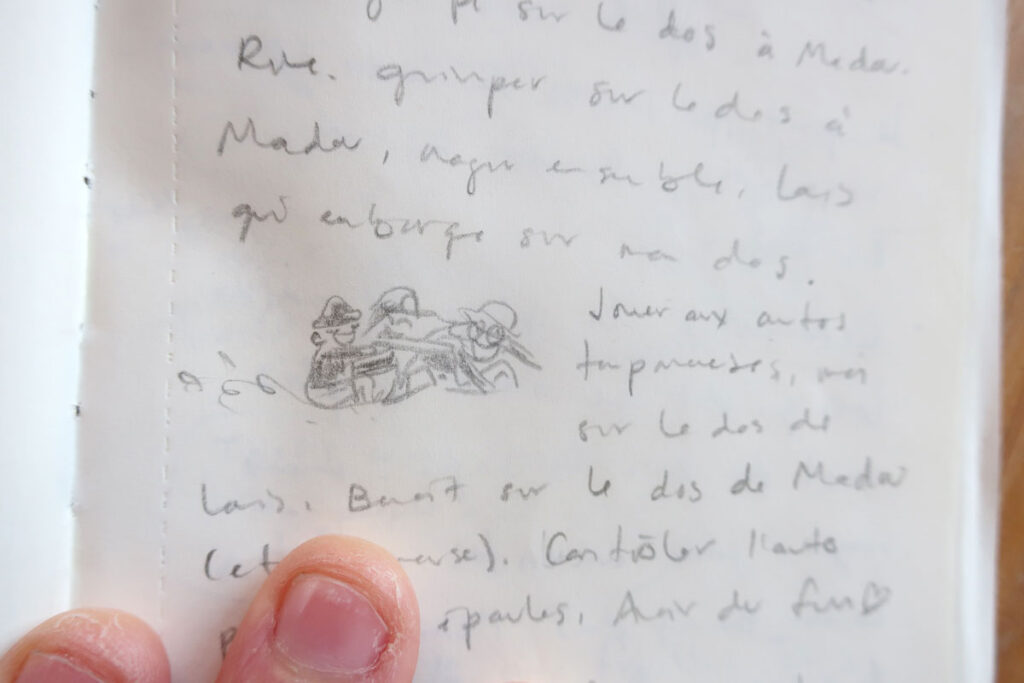 sur le dos à Madar.
Rire. grimper sur le dos à
Madar, nager ensemble, Laïs
qui embarque sur mon dos.
Jouer aux autos
tamponneuses, moi
sur le dos de
Laïs. Benoît sur le dos de Madar
(et). Contrôler l'auto
épaules. Avoir du fun♡